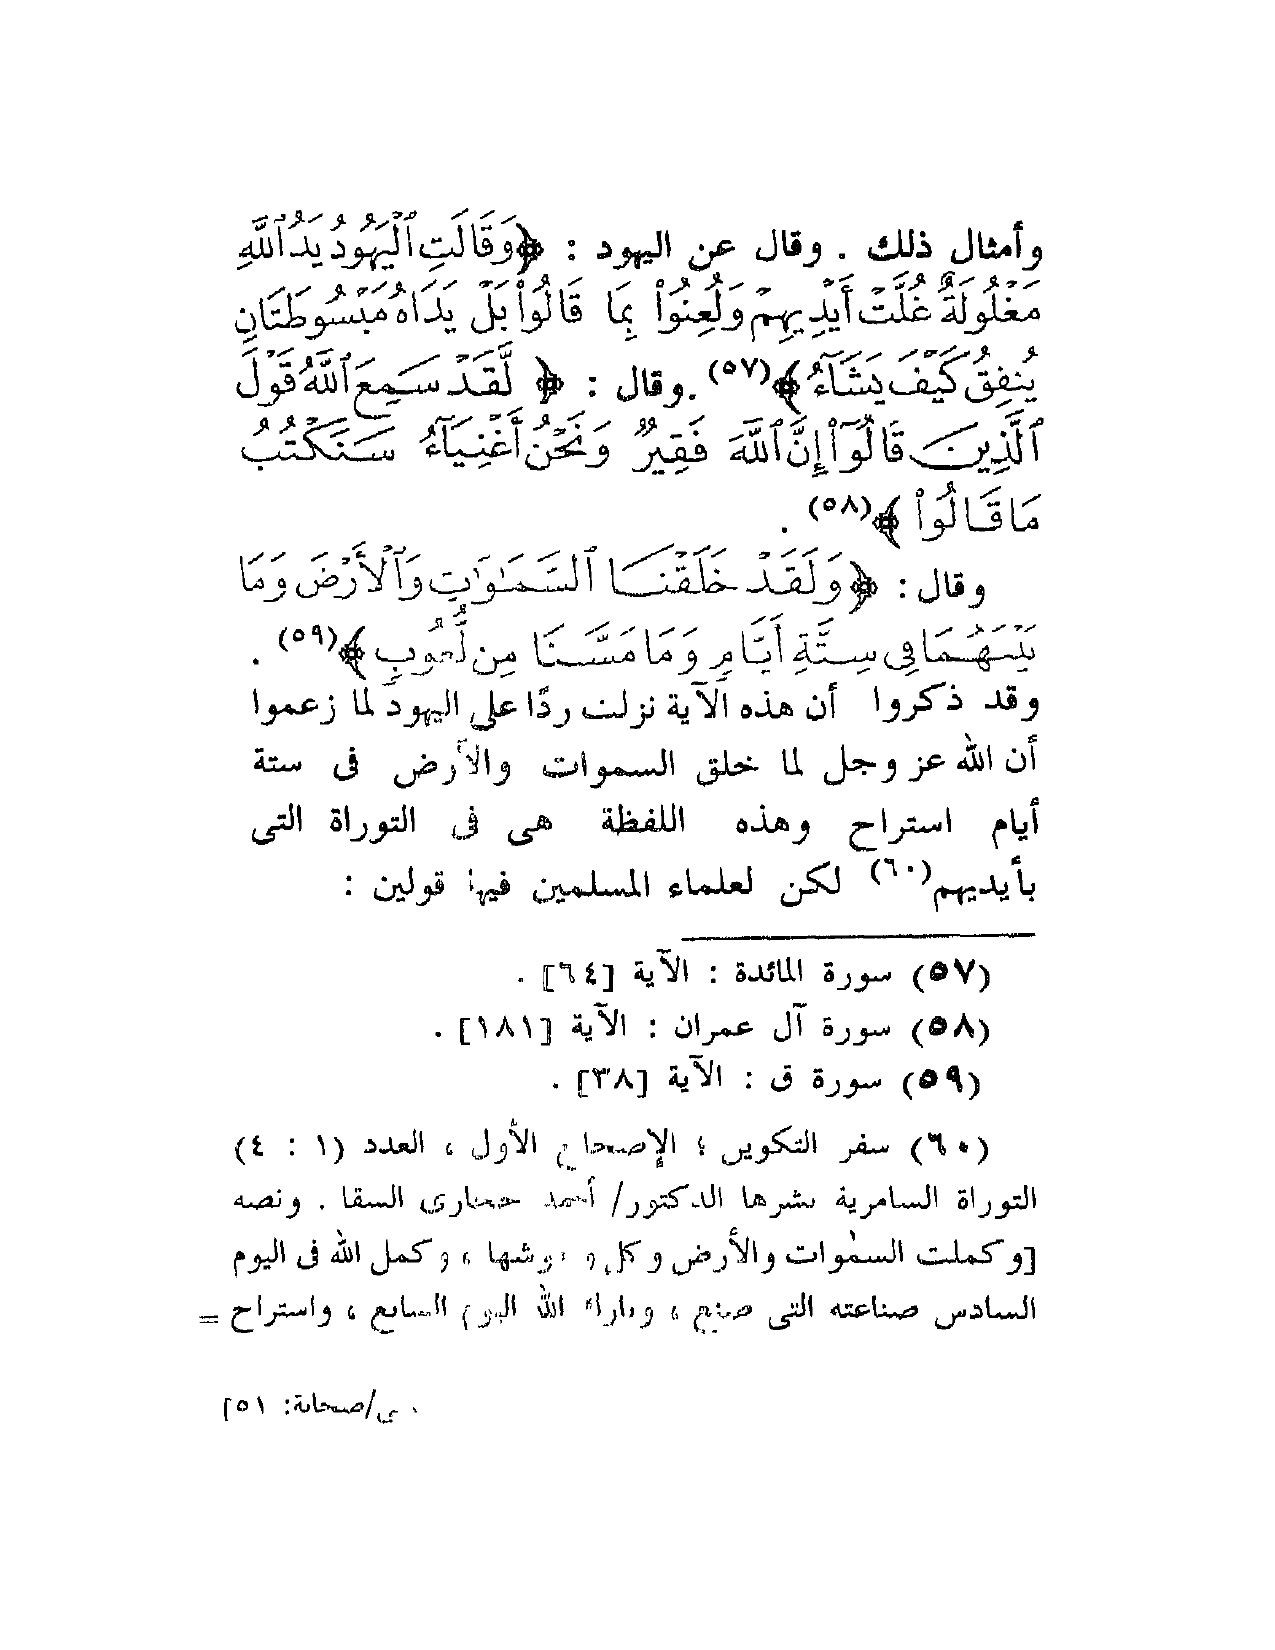 وأمثال ذلك . وقال عن اليهود : ﴿وَقَالَتِ ٱلْيَهُودُ يَدُ ٱللَّهِ
مَغْلُولَةٌ غُلَّتْ أَيْدِيهِمْ وَلُعِنُوا۟ بِمَا قَالُوا۟ بَلْ يَدَاهُ مَبْسُوطَتَانِ
يُنفِقُ كَيْفَ يَشَآءُ﴾(٥٧) .وقال : ﴿ لَّقَدْ سَمِعَ ٱللَّهُ قَوْلَ
ٱلَّذِينَ قَالُوٓا۟ إِنَّ ٱللَّهَ فَقِيرٌ وَنَحْنُ أَغْنِيَآءُ سَنَكْتُبُ
مَا قَالُوا۟ ﴾(٥٨) .
وقال : ﴿وَلَقَدْ خَلَقْنَا ٱلسَّمَـٰوَٰتِ وَٱلْأَرْضَ وَمَا
بَيْنَهُمَا فِى سِتَّةِ أَيَّامٍ وَمَا مَسَّنَا مِن لُّغُوبٍ ﴾(٥٩) .
وقد ذكروا أن هذه الآية نزلت ردًا على اليهود لما زعموا
أن الله عز وجل لما خلق السموات والأرض فى ستة
أيام استراح وهذه اللفظة هى فى التوراة التى
بأيديهم(٦٠) لكن لعلماء المسلمين فيها قولين :
(٥٧) سورة المائدة : الآية [٦٤] .
(٥٨) سورة آل عمران : الآية [١٨١] .
(٥٩) سورة ق : الآية [٣٨] .
(٦٠) سفر التكوين ؛ الإصحاح الأول ، العدد (١ : ٤)
التوراة السامرية نشرها الدكتور/ أحمد حجازى السقا . ونصه
[وكملت السمٰوات والأرض وكل ، وكمل الله فى اليوم
السادس صناعته التى صنع ، وبارك الله اليوم السابع ، واستراح =
/صحابة: ٥١]